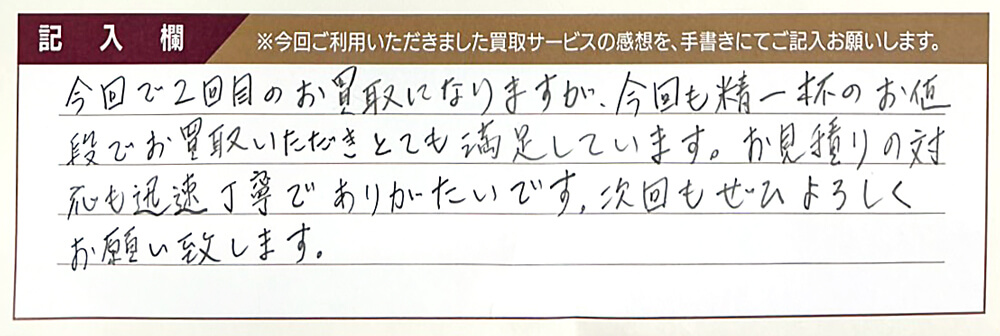 記入欄
※今回ご利用いただきました買取サービスの感想を、手書きにてご記入お願いします。
今回で2回目のお買取になりますが、今回も精一杯のお値
段でお買取いただきとても満足しています。お見積りの対
応も迅速丁寧でありがたいです。次回もぜひよろしく
お願い致します。